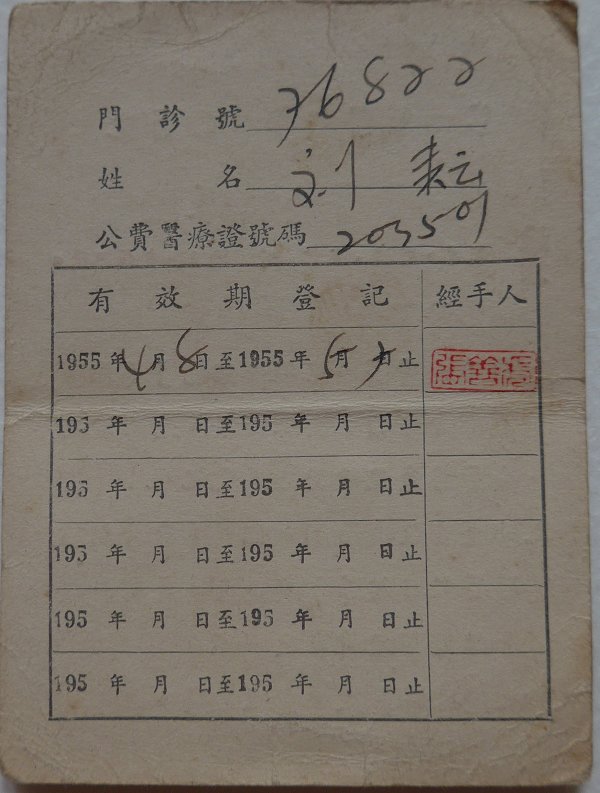 門診號 76822
姓名 刘
公費醫療證號碼 203501
有效期登記 經手人
1955年4月8日至1955年5月7日止
195 年 月 日至195 年 月 日止
195 年 月 日至195 年 月 日止
195 年 月 日至195 年 月 日止
195 年 月 日至195 年 月 日止
195 年 月 日至195 年 月 日止